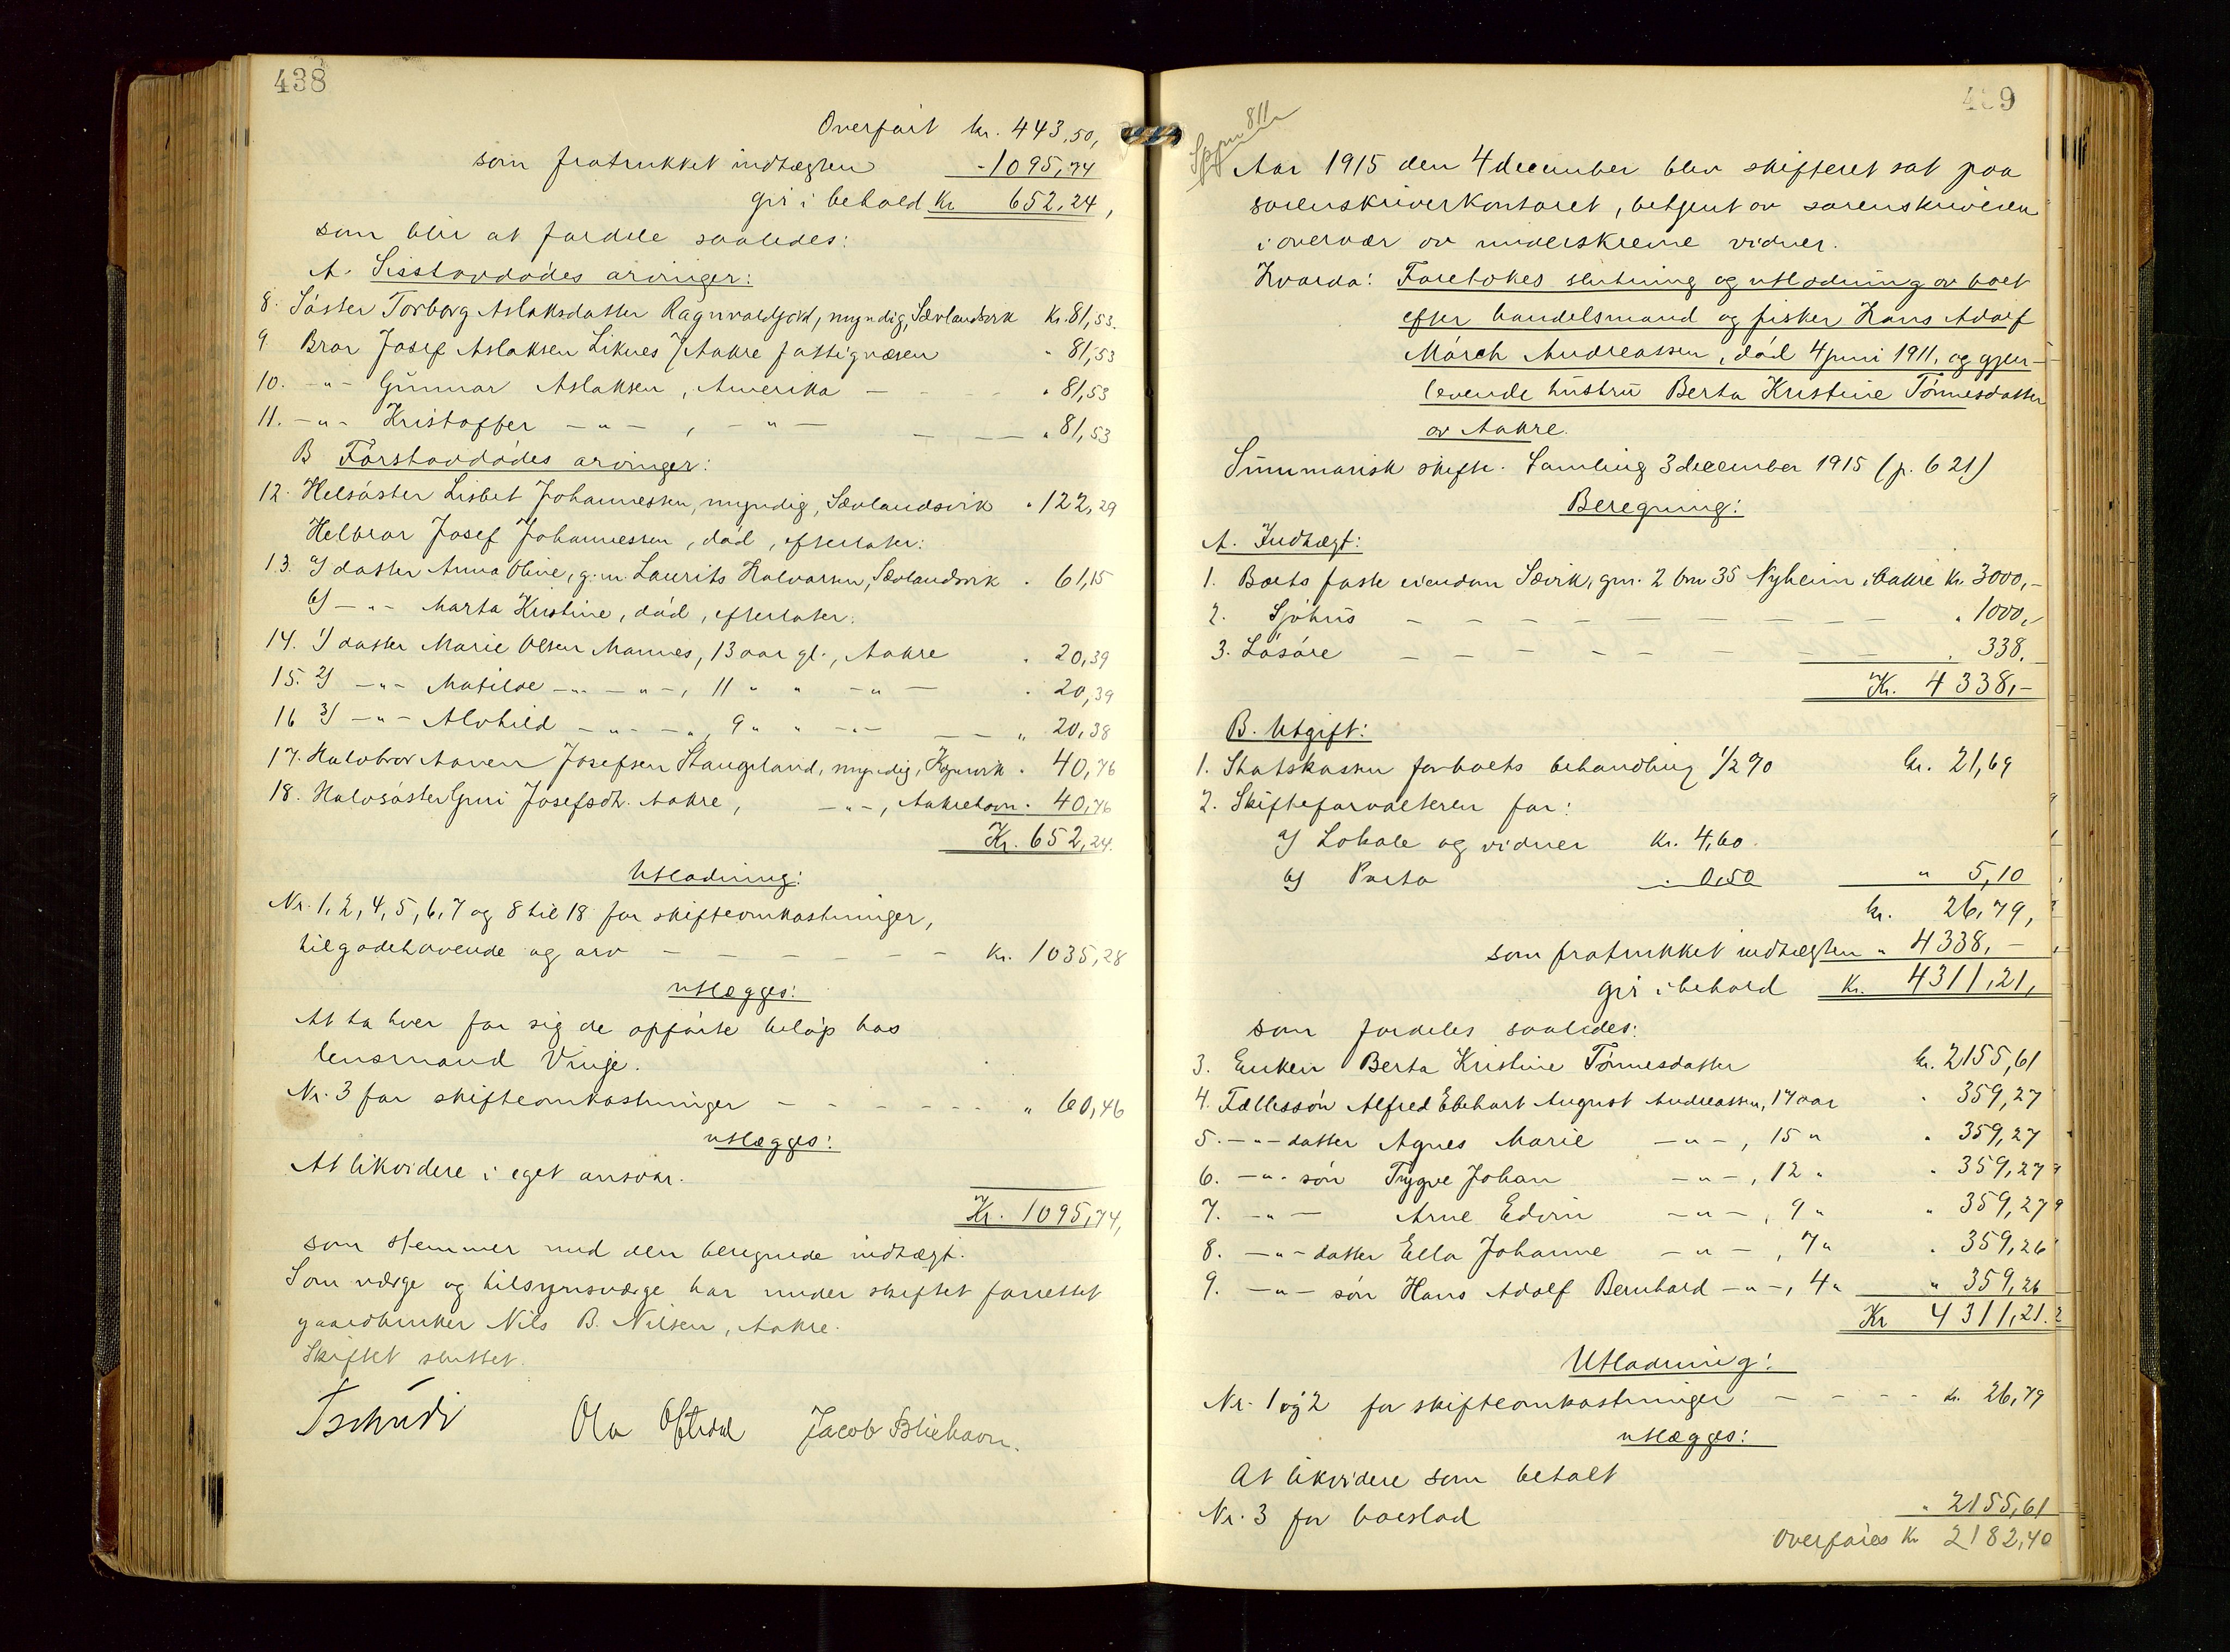 438
Overført kr. 443,50,
som fratrukket indtægten - 1095,74
gir i behold Kr 652,24,
som blir at fordele saaledes:
A. Sisstavdødes arvinger:
8. Søster Torborg Aslaksdatter Ragnvaldjord, myndig, Sævlandsvik Kr. 81,53.
9 Bror Josef Aslaksen Liknes / Aakre fattigvæsen " 81,53
10. -"- Gunnar Aslaksen, Amerika - - - - " 81,53
11. -"- Kristoffer -"-, -"- - - - " 81,53
B Førstavdødes arvinger:
12. Helsøster Lisbet Johannessen, myndig, Sævlandsvik " 122,29
Helbror Josef Johannessen, død, efterlater:
13. a) datter Anna Oline, g.m. Laurits Halvorsen, Sævlandsvik " 61,15
b) -"- Marta Kristine, død, efterlater:
14. 1) datter Marie Olsen Mannes, 13 aar gl., Aakre " 20,39
15. 2) -"- Matilde -"- -"-, 11 " " -"- " 20,39
16 3) -"- Alvhild -"- -"-, 9 " " -"- - - " 20,38
17. Halvbror Aanen Josefsen Stangeland, myndig, Kopervik " 40,76
18. Halvsøster Guri Josefsdtr. Aakre, -"-, Aakrehavn " 40,76
Kr. 652,24.
Utlodning:
Nr. 1, 2, 4, 5, 6, 7 og 8 til 18 for skifteomkostninger,
tilgodehavende og arv - - - - - - - kr. 1035,28
utlægges:
At ta hver for sig de opførte beløp hos
lensmand Vinje.
Nr. 3 for skifteomkostninger - - - - - - " 60,46
utlægges:
At likvidere i eget ansvar.
Kr. 1095,74,
som stemmer med den beregnede indtægt.
Som værge og tilsynsværge har under skiftet forrettet
gaardbruker Nils B. Nilsen, Aakre.
Skiftet sluttet.
Tschudi Ola Oftedal Jacob
439
811
Aar 1915 den 4 december blev skifteret sat paa
sorenskriverkontoret, betjent av sorenskriveren
i overvær av underskrevne vidner.
Hvorda: Foretokes slutning og utlodning av boet
efter handelsmand og fisker Hans Adolf
Mørch Andreassen, død 4 juni 1911, og gjen-
levende hustru Berta Kristine Tønnesdatter
av Aakre.
Summarisk skifte. Samling 3 december 1915 (p. 621)
Beregning:
A. Indtægt:
1. Boets faste eiendom Sævik, gnr. 2 bnr 35 Nyheim i Aakre Kr. 3000,-
2. Sjøhus - - - - - - - - - " 1000,-
3. Løsøre - - - - - - - - " 338,-
Kr. 4338,-
B. Utgift:
1. Statskassen for boets behandling 1/2 % kr. 21,69
2. Skifteforvalteren for:
a) Lokale og vidner Kr. 4,60.
b) Porto " 0,50 " 5,10
kr. 26,79,
som fratrukket indtægten " 4338,-
gir i behold Kr. 4311,21,
som fordeles saaledes:
3. Enken Berta Kristine Tønnesdatter kr. 2155,61
4. Fællessøn Alfred Ebehart August Andreassen, 17 aar " 359,27
5. -"- datter Agnes Marie -"-, 15 " " 359,27
6. -"- søn Trygve Johan -"-, 12 " " 359,27
7. -"- Arne Edvin -"-, 9 " " 359,27
8. -"- datter Ella Johanne -"-, 7 " " 359,26
9. -"- søn Hans Adolf Bernhard -"-, 4 " " 359,26
Kr 4311,21.
Utlodning:
Nr. 1 og 2 for skifteomkostninger - - - - kr. 26,79
utlægges:
At likvidere som betalt
Nr. 3 for boeslod " 2155,61
Overføres Kr 2182,40